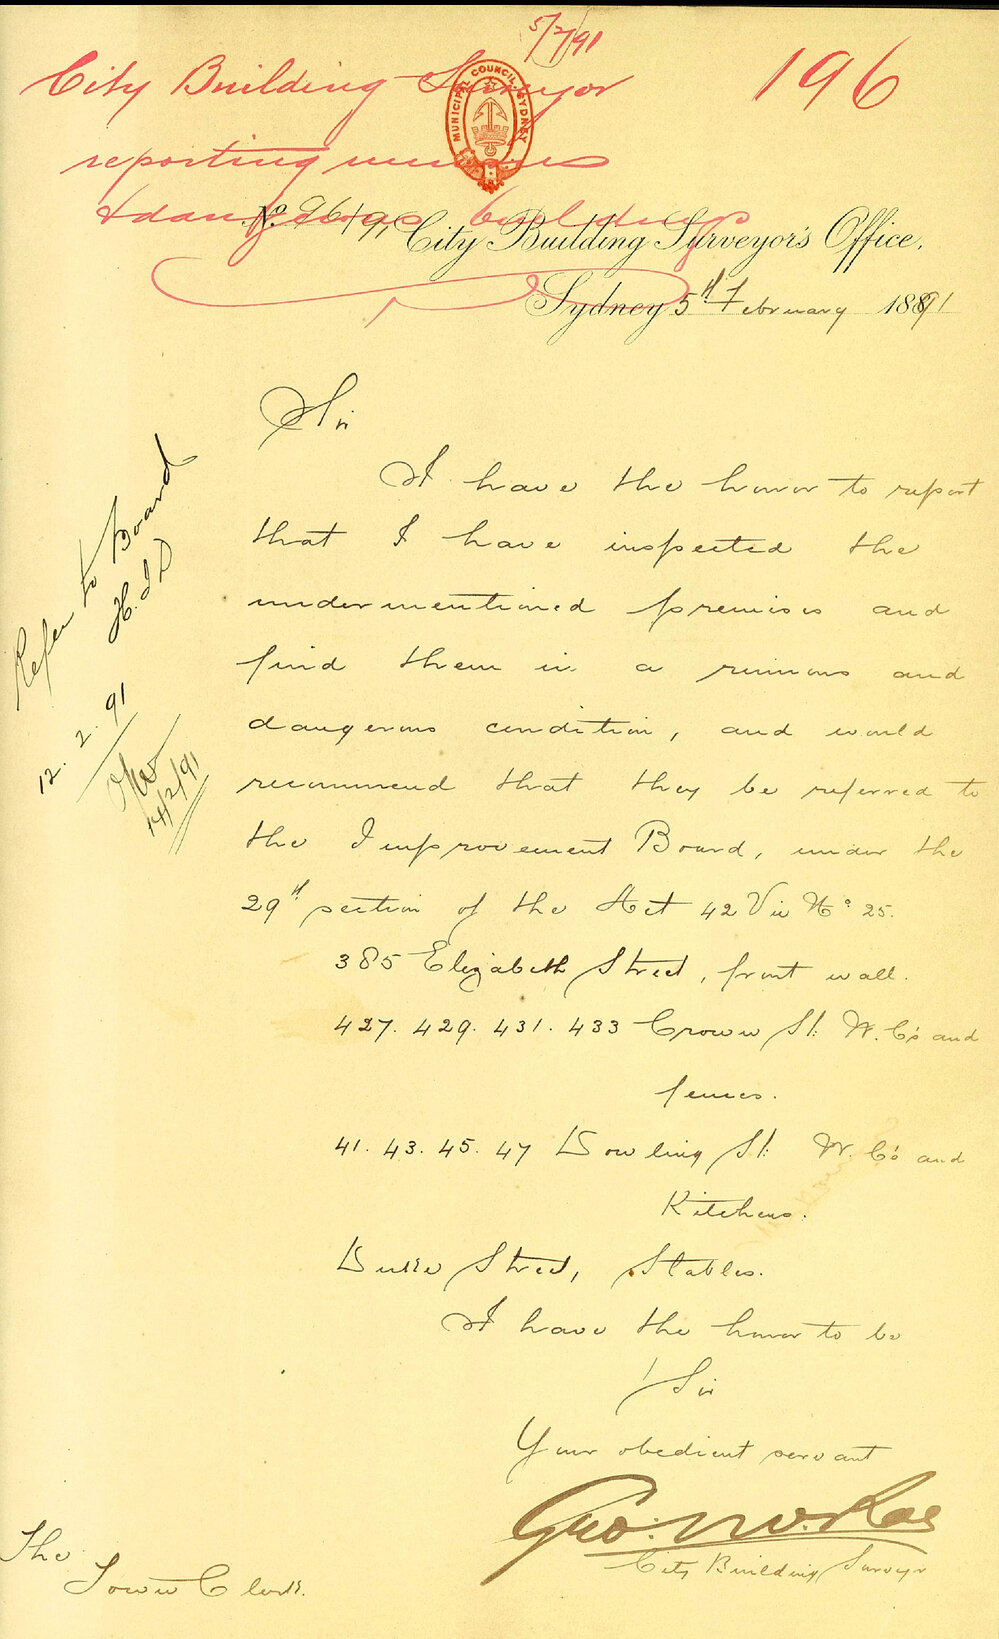 5/2/91
196
City Building Surveyor
reporting ruinous
& dangerous buildings
MUNICIPAL COUNCIL SYDNEY
No. 96/91 City Building Surveyor's Office,
Sydney 5th February 1891
Sir
I have the honor to report
that I have inspected the
undermentioned premises and
find them in a ruinous and
dangerous condition, and would
recommend that they be referred to
the Improvement Board, under the
29th section of the Act 42 Vic No 25.
385 Elizabeth Street, front wall.
427. 429. 431. 433 Crown St. W.C's and
fences.
41. 43. 45. 47 Dowling St. W.C's and
Kitchens.
Burke Street, Stables.
I have the honor to be
Sir
Your obedient servant
Geo: McRae
City Building Surveyor
The
Town Clerk.
Refer to Board
12.2.91
14/2/91